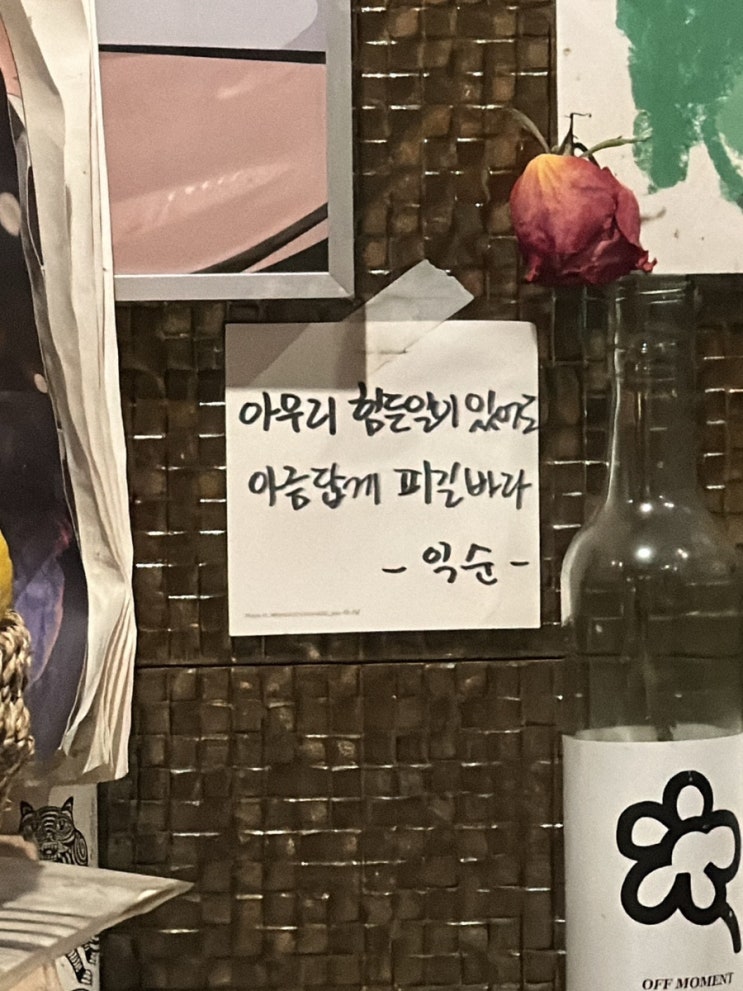 아무리 힘든일이 있어도
아름답게 피길바라
- 익순 -
OFF MOMENT